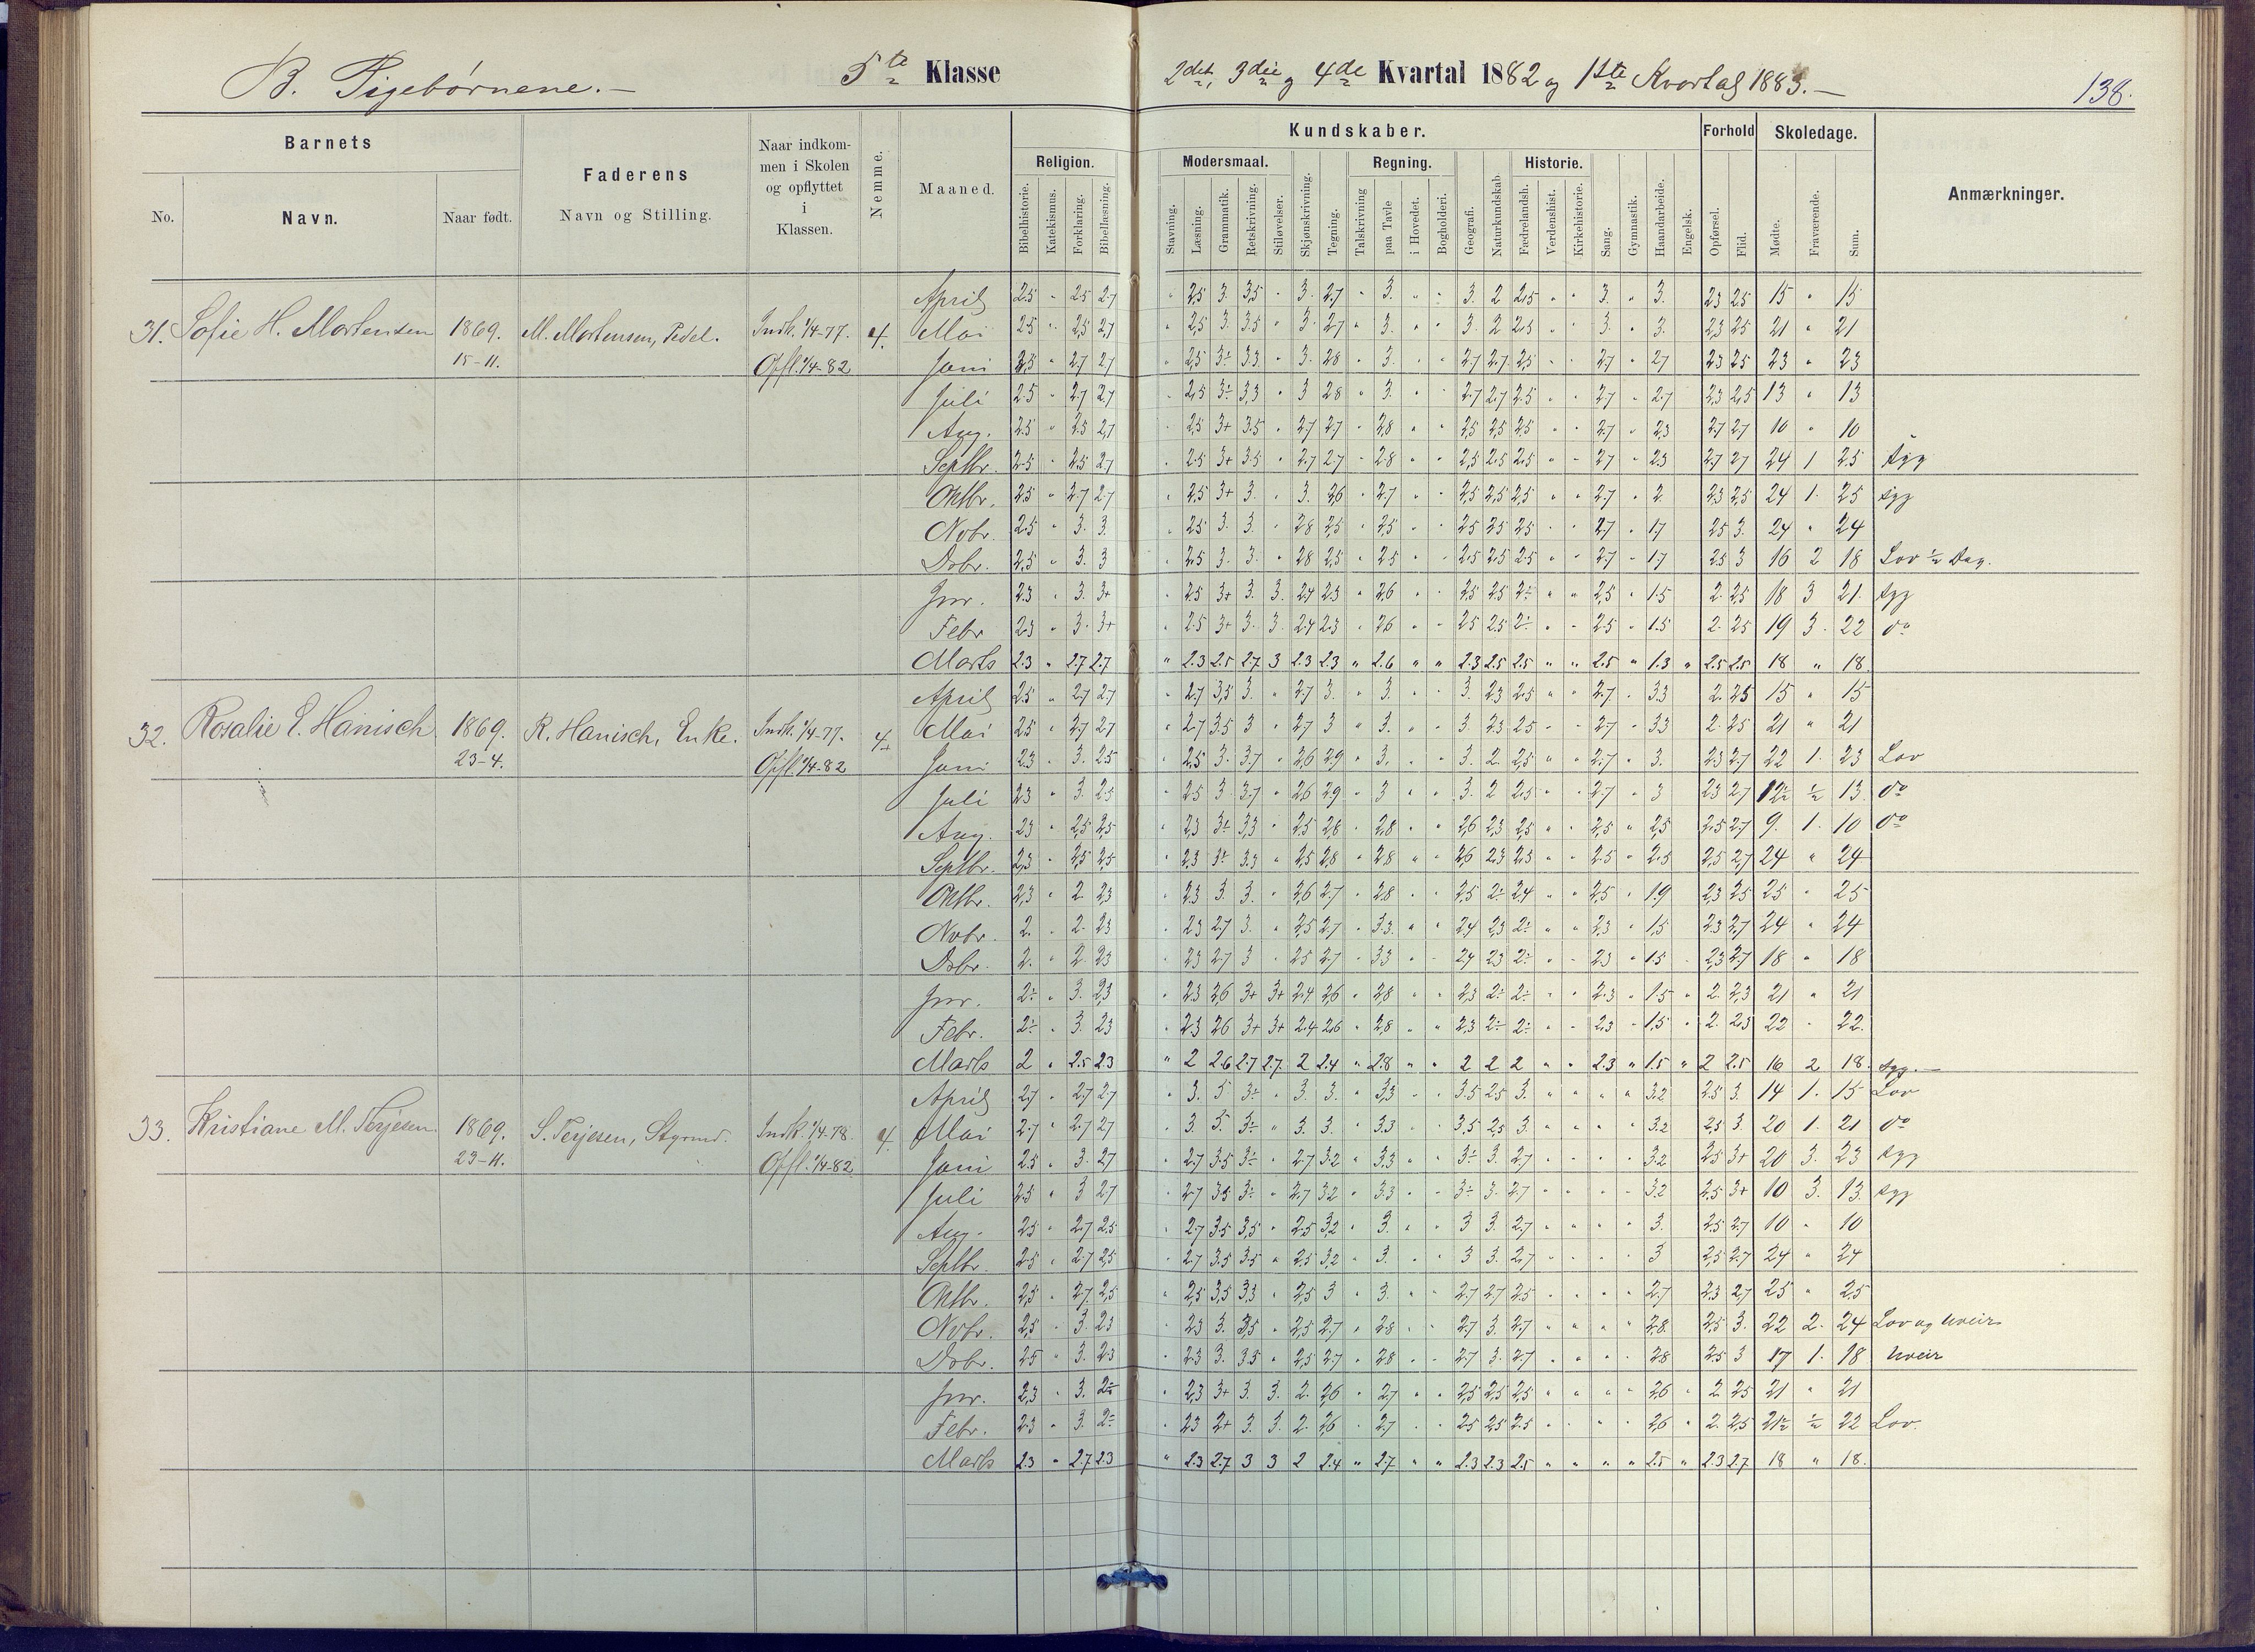 B. Pigebørnene. —
5te Klasse
2det, 3die og 4de Kvartal 1882 og 1ste Kvartal 1883. —
138.
Barnets
No.
Navn.
Naar født.
Faderens
Navn og Stilling.
Naar indkom-
men i Skolen
og opflyttet
i
Klassen.
Nemme.
Maaned.
Kundskaber.
Religion.
Bibelhistorie.
Katekismus.
Forklaring.
Bibellæsning.
Modersmaal.
Stavning.
Læsning.
Grammatik.
Retskrivning.
Stiløvelser.
Skjønskrivning.
Tegning.
Regning.
Talskrivning
paa Tavle
i Hovedet.
Bogholderi.
Geografi.
Naturkundskab
Historie.
Fædrelandsh.
Verdenshist.
Kirkehistorie.
Sang.
Gymnastik.
Haandarbeide.
Engelsk.
Forhold
Opførsel.
Flid.
Skoledage.
Mødte.
Fraværende.
Sum.
Anmærkninger.
31. Sofie H. Mortensen 1869. 15-11. M. Mortensen, Pedel. Indk. 1/4-77. Opfl. 1/4-82 4.
April 2.5 " 2.5 2.7 " 2.5 3. 3.5 " 3. 2.7 " 3. " " 3. 2 2.5 " " 3. " 3. 2.3 2.5 15 " 15
Mai 2.5 " 2.5 2.7 " 2.5 3. 3.5 " 3. 2.7 " 3. " " 3. 2 2.5 " " 3. " 3. 2.3 2.5 21 " 21
Juni 2.5 " 2.7 2.7 " 2.5 3÷ 3.3 " 3. 2.8 " 3. " " 2.7 2.7 2.5 " " 2.7 " 2.7 2.3 2.5 23 " 23
Juli 2.5 " 2.7 2.7 " 2.5 3÷ 3.3 " 3 2.8 " 3. " " 2.7 2.7 2.5 " " 2.7 " 2.7 2.3 2.5 13 " 13
Aug. 2.5 " 2.5 2.7 " 2.5 3+ 3.5 " 2.7 2.7 " 2.8 " " 2.5 2.5 2.5 " " 2.7 " 2.3 2.7 2.7 10 " 10
Septbr. 2.5 " 2.5 2.7 " 2.5 3+ 3.5 " 2.7 2.7 " 2.8 " " 2.5 2.5 2.5 " " 2.7 " 2.3 2.7 2.7 24 1 25 syg
Oktbr. 2.5 " 2.7 2.7 " 2.5 3+ 3. " 3. 2.6 " 2.7 " " 2.5 2.5 2.5 " " 2.7 " 2. 2.3 2.5 24 1. 25 syg
Novbr. 2.5 " 3. 3. " 2.5 3. 3. " 2.8 2.5 " 2.5 " " 2.5 2.5 2.5 " " 2.7 " 1.7 2.5 3. 24 " 24
Dsbr. 2.5 " 3. 3 " 2.5 3. 3. " 2.8 2.5 " 2.5 " " 2.5 2.5 2.5 " " 2.7 " 1.7 2.5 3 16 2 18 Lov ½ Dag.
Jnr. 2.3 " 3. 3+ " 2.5 3+ 3. 3. 2.4 2.3 " 2.6 " " 2.5 2.5 2÷ " " 2.5 " 1.5 2. 2.5 18 3 21. syg
Febr 2.3 " 3. 3+ " 2.5 3+ 3. 3 2.4 2.3 " 2.6 " " 2.5 2.5 2÷ " " 2.5 " 1.5 2. 2.5 19 3. 22 do
Marts 2.3 " 2.7 2.7 " 2.3 2.5 2.7 3 2.3 2.3 " 2.6 " " 2.3 2.5 2.5 " " 2.5 " 1.3 " 2.5 2.5 18 " 18.
32. Rosalie E. Hanisch 1869. 23-4. R. Hanisch, Enke. Indk. 1/4-77. Opfl. 1/4-82 4+
April 2.5 " 2.7 2.7 " 2.7 3.5 3. " 2.7 3. " 3. " " 3. 2.3 2.5 " " 2.7. " 3.3 2. 2.5 15 " 15
Mai 2.5 " 2.7 2.7 " 2.7 3.5 3 " 2.7 3 " 3. " " 3. 2.3 2.5 " " 2.7 " 3.3 2. 2.5 21 " 21
Juni 2.3 " 3. 2.5 " 2.5 3. 3.7 " 2.6 2.9 " 3. " " 3. 2. 2.5 " " 2.7 " 3. 2.3 2.7 22 1. 23 Lov
Juli 2.3 " 3. 2.5 " 2.5 3 3.7 " 2.6 2.9 " 3 " " 3. 2 2.5 " " 2.7 " 3 2.3 2.7 12½ ½ 13. do
Aug. 2.3 " 2.5 2.5 " 2.3 3÷ 3.3 " 2.5 2.8 " 2.8 " " 2.6 2.3 2.5 " " 2.5 " 2.5 2.5 2.7 9. 1. 10 do
Septbr. 2.3 " 2.5 2.5 " 2.3 3÷ 3.3 " 2.5 2.8 " 2.8 " " 2.6 2.3 2.5 " " 2.5 " 2.5 2.5 2.7 24 " 24
Oktbr. 2.3 " 2. 2.3 " 2.3 3. 3. " 2.6 2.7 " 2.8 " " 2.5 2÷ 2.4 " " 2.5 " 1.9 2.3 2.5 25 " 25
Novbr. 2. " 2. 2.3 " 2.3 2.7 3. " 2.5 2.7 " 3.3. " " 2.4 2.3 2÷ " " 2.3 " 1.5 2.3 2.7 24 " 24
Dsbr. 2. " 2. 2.3 " 2.3 2.7 3 " 2.5 2.7 " 3.3 " " 2.4 2.3 2÷ " " 2.3 " 1.5 2.3 2.7 18 " 18
Jnr. 2÷ " 3. 2.3 " 2.3 2.6 3+ 3+ 2.4 2.6 " 2.8 " " 2.3 2÷ 2÷ " " 2.3 " 1.5 " 2. 2.3 21 " 21
Febr. 2÷ " 3. 2.3 " 2.3 2.6 3+ 3+ 2.4 2.6 " 2.8 " " 2.3 2÷ 2÷ " " 2.3 " 1.5 " 2. 2.3 22 " 22.
Marts 2 " 2.5 2.3 " 2 2.6 2.7 2.7. 2 2.4 " 2.8 " " 2 2 2 " " 2.3 " 1.5 " 2 2.5 16 2 18. syg. —
33. Kristiane M. Terjesen. 1869. 23-11. S. Terjesen, Styrmd. Indk. 1/4-78. Opfl. 1/4-82 4.
April 2.7 " 2.7 2.7 " 3. 5 3÷ " 3. 3. " 3.3 " " 3.5 2.5 3. " " " " 3.2 2.5 3. 14 1. 15 Lov
Mai 2.7 " 2.7 2.7 " 3 5. 3÷ " 3. 3. " 3.3 " " 3.5 2.5 3. " " " " 3.2 2.5 3. 20 1. 21 do
Juni 2.5 " 3. 2.7 " 2.7 3.5 3÷ " 2.7 3.2 " 3.3 " " 3÷ 3. 2.7 " " " " 3.2 2.5 3+ 20 3. 23 syg
Juli 2.5 " 3 2.7 " 2.7 3.5 3÷ " 2.7 3.2 " 3.3 " " 3÷ 3. 2.7 " " " " 3.2 2.5 3+ 10 3. 13. syg
Aug. 2.5 " 2.7 2.5 " 2.7 3.5 3.5 " 2.5 3.2 " 3. " " 3 3. 2.7 " " " " 3. 2.5 2.7 10 " 10
Septbr. 2.5 " 2.7 2.5 " 2.7 3.5 3.5 " 2.5 3.2 " 3. " " 3 3. 2.7 " " " " 3 2.5 2.7 24 " 24
Oktbr. 2.5 " 2.7. 2.5 " 2.5 3.5 3.3 " 2.5 3 " 3. " " 2.7 2.7 2.5 " " " " 2.7 2.3 2.7 25 " 25
Novbr. 2.5 " 3. 2.3 " 2.3 3. 3.5 " 2.5 2.7 " 2.8 " " 2.7 3. 2.7 " " " " 2.8. 2.5 3. 22 2. 24 Lov og Uveir
Dsbr. 2.5 " 3. 2.3 " 2.3 3. 3.5 " 2.5 2.7 " 2.8 " " 2.7 3. 2.7 " " " " 2.8 2.5 3 17 1. 18 Uveir
Jnr. 2.3 " 3. 2÷ " 2.3 3+ 3. 3. 2. 2.6 " 2.7 " " 2.5 2.5 2.5 " " " " 2.6 " 2 2.5 21 " 21
Febr. 2.3 " 3. 2÷ " 2.3 2+ 3. 3. 2. 2.6 " 2.7 " " 2.5 2.5 2.5 " " " " 2.6 " 2. 2.5 21½ ½ 22 Lov.
Marts 2.3 " 2.7 2.3 " 2.3 2.7 3 3 2 2.4 " 2.7 " " 2.3 2.3 2.5 " " " " 2.5 " 2.3 2.7 18 " 18.